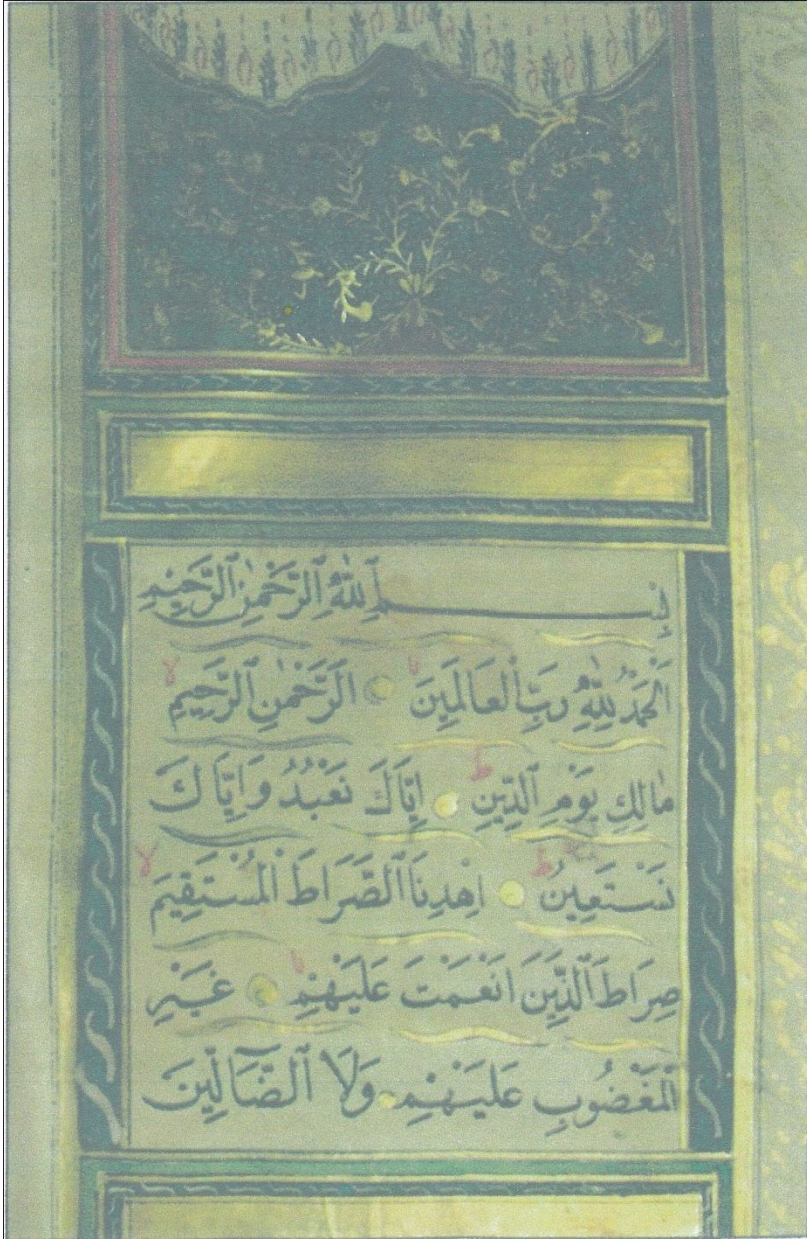 بِسْمِ ٱللّٰهِ ٱلرَّحْمٰنِ ٱلرَّحِيْمِ
اَلْحَمْدُ لِلّٰهِ رَبِّ ٱلْعَالَمِيَنَ ۙ اَلرَّحْمٰنِ ٱلرَّحِيمِ ۙ
مٰالِكِ يَوْمِ ٱلدِّيْنِ ط اِيَّاكَ نَعْبُدُ وَاِيَّاكَ
نَسْتَعِينُ ط اِهْدِنَا ٱلصِّرَاطَ ٱلْمُسْتَقِيمَ ۙ
صِرَاطَ ٱلَّذِينَ اَنْعَمْتَ عَلَيْهِمْ ۙ غَيْرِ
ٱلْمَغْضُوبِ عَلَيْهِمْ وَلَا ٱلضَّآلِّينَ